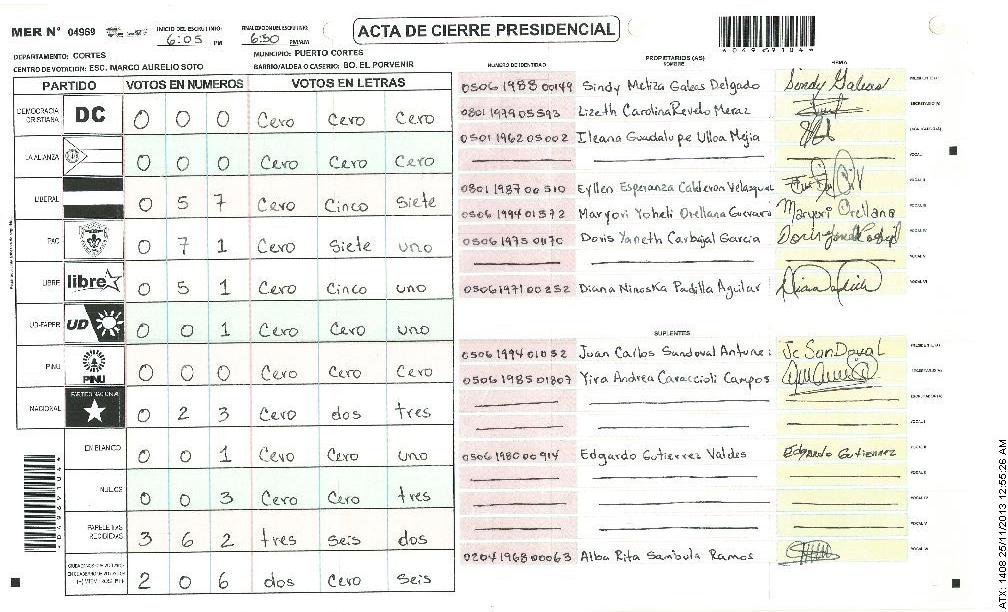 MER N° 04969
INICIO DEL ESCRUTINIO: 6:05 PM
FINALIZACION DEL ESCRUTINIO: 6:50 PM/AM
ACTA DE CIERRE PRESIDENCIAL
DEPARTAMENTO: CORTES
MUNICIPIO: PUERTO CORTES
CENTRO DE VOTACION: ESC. MARCO AURELIO SOTO
BARRIO/ALDEA O CASERIO: BO. EL PORVENIR
PARTIDO VOTOS EN NUMEROS VOTOS EN LETRAS
DEMOCRACIA CRISTIANA DC 0 0 0 Cero Cero Cero
LA ALIANZA 0 0 0 Cero Cero Cero
LIBERAL 0 5 7 Cero Cinco Siete
PAC 0 7 1 Cero Siete uno
LIBRE libre 0 5 1 Cero Cinco uno
UD-FAPER UD 0 0 1 Cero Cero uno
PINU PINU 0 0 0 Cero Cero Cero
NACIONAL PARTIDO NACIONAL 0 2 3 Cero dos tres
EN BLANCO 0 0 1 Cero Cero uno
NULOS 0 0 3 Cero Cero tres
PAPELETAS RECIBIDAS 3 6 2 tres seis dos
2 0 6 dos Cero seis
PROPIETARIOS (AS)
NUMERO DE IDENTIDAD NOMBRE FIRMA
0506 1988 00149 Sindy Meliza Galeas Delgado Sindy Galeas
0801 1979 05593 Lizeth Carolina Revelo Meraz
0501 1962 05002 Ileana Guadalupe Ulloa Mejia
0801 1987 06510 Eyllen Esperanza Calderon Velasquez
0506 1994 01572 Maryori Yoheli Orellana Guevara Maryori Orellana
0506 1975 01170 Doris Yaneth Carbajal Garcia
0506 1971 00252 Diana Ninoska Padilla Aguilar
SUPLENTES
0506 1994 01052 Juan Carlos Sandoval Antunez Jc Sandoval
0506 1985 01807 Yira Andrea Caraccioli Campos
0506 1980 00914 Edgardo Gutierrez Valdes Edgardo Gutierrez
0204 1968 00063 Alba Rita Sambula Ramos
*04969104*
ATX: 1408 25/11/2013 12:55:26 AM